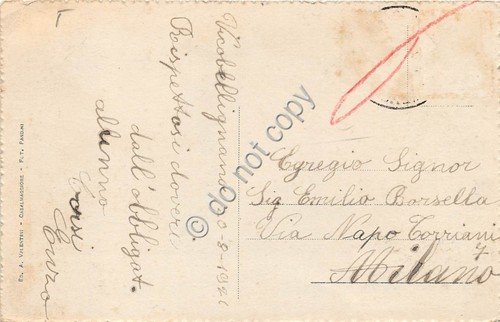 Vicobellignano 20-8-1926
Rispettosi doveri
dall'obbligat.
alunno
Corsi
Enzo
Egregio Signor
Sig Emilio Borsella
Via Napo Torriani
7
Milano
ED. A. VALENTINI - CASALMAGGIORE - FOT. FAVAGNI
© do not copy